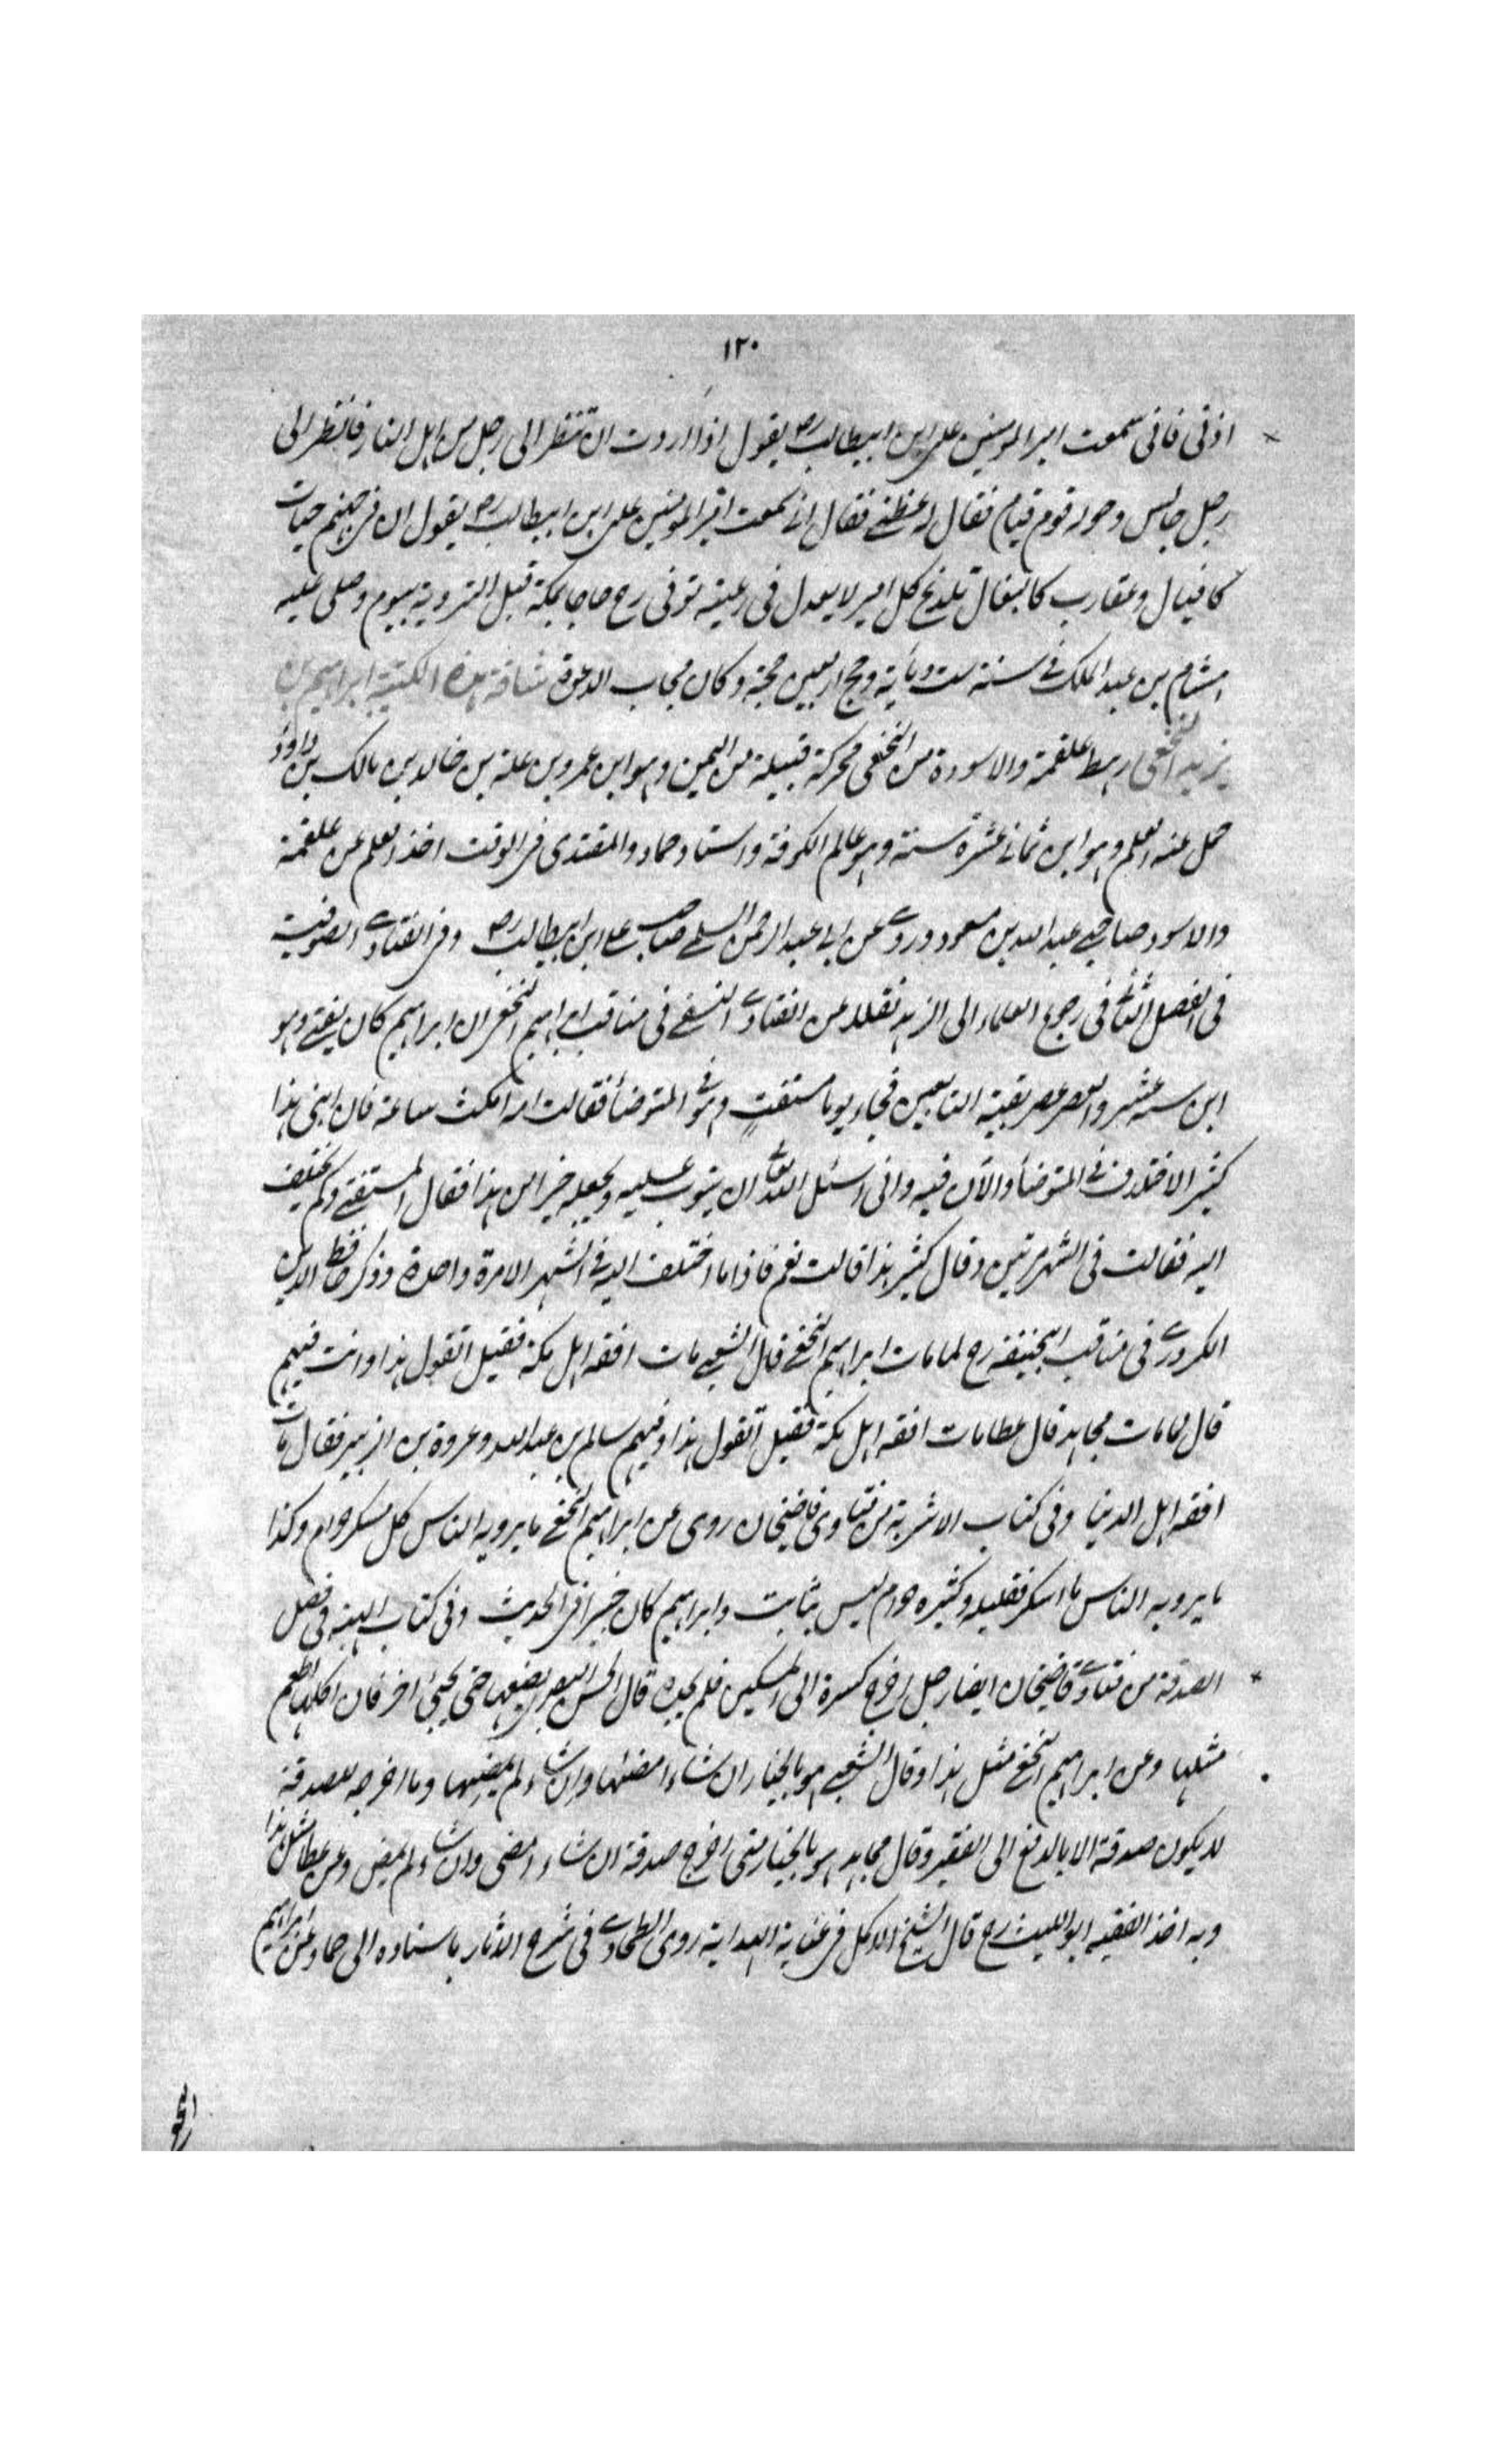 ١٢٠
اذنى فانى سمعت امير المومنين على ابن ابيطالب رض يقول اذا اردت ان تنظر الى رجل من اهل النار فانظر الى
رجل جالس وحوله قوم قيام فقال له عظنے فقال انے سمعت امير المومنين على ابن ابيطالب رض يقول ان فى جهنم حيات
كافيال وعقارب كالبغال تلدغ كل امير لا يعدل فى رعيته توفى رح حاجا بمكة قبل التروية بيوم وصلى عليه
هشام بن عبد الملك فے سنة ست ومأية وحج اربعين حجة وكان مجاب الدعوة هذه الكتيبة ابراهيم بن
يزيد النخعى رهط علقمة والاسود من النخعى محركة قبيلة من اليمن وهو ابن عمرو بن علة بن خالد بن مالك بن داود
حمل عنه العلم وهو ابن ثمانے عشرة سنة وهو عالم الكوفة واستاد حماد والمقتدى فى الوقت اخذ العلم عن علقمة
والاسود صاحبے عبد الله بن مسعود وروى عن ابے عبد الرحمن السلمے صاحب على ابن ابيطالب رض وفى الفتاوى الصوفية
فى الفصل الثانے فى رجوع العلماء الى الزهد نقلا عن الفتاوى النسفے فى مناقب ابراهيم النخعى ان ابراهيم كان يفتے وهو
ابن ستة عشر والعصر عصر بقية التابعين فجاء يوما مستفتٍ وهو فے المتوضأ فقالت امه امكث ساعة فان ابنى هذا
كثير الاختلاف فے المتوضأ والآن فيه وانى اسئل الله تعالى ان يتوب عليه ويجعله خيرا من هذا فقال المستفتے وكم يختلف
اليه فقالت فى الشهر مرتين وقال كثير هذا قالت نعم فاذا ما اختلف اليه فے الشهر الا مرة واحدة وذكر حافظ الدين
الكردرى فى مناقب ابيحنيفه رح لما مات ابراهيم النخعے قال الشعبے مات افقه اهل مكة فقيل اتقول هذا وانت فيهم
قال لما مات مجاهد قال عطا مات افقه اهل مكة فقيل اتقول هذا وفيهم سالم بن عبد الله وعروة بن الزبير فقال مات
افقه اهل الدنيا وفى كتاب الاشربة من فتاوى قاضيخان روى عن ابراهيم النخعے ما يرويه الناس كل مسكر حرام وكذا
ما يرويه الناس ما اسكر فقليله وكثيره حرام ليس بثابت وابراهيم كان خبيرا فى الحديث وفى كتاب الهبة فى فصل
الصدقة من فتاوى قاضيخان ايضا رجل اخرج كسرة الى المسكين فلم يجده قال الحسن البصرى يضعها حتى يجيئ اخر فان اكلها اطعم
مثلها وعن ابراهيم النخعے مثل هذا وقال الشعبے هو بالخيار ان شاء امضئها وان شاء لم يمضيها وما اخرجه للصدقة
لا يكون صدقة الا بالدفع الى الفقير وقال مجاهد هو بالخيار متى اخرج صدقة ان شاء امضى وان شاء لم يمض وعن عطا مثل هذا
وبه اخذ الفقيه ابو الليث رح قال الشيخ الاكمل فى عناية الهداية روى الطحاوى فى شرح الاثار باسناده الى حماد عن ابراهيم